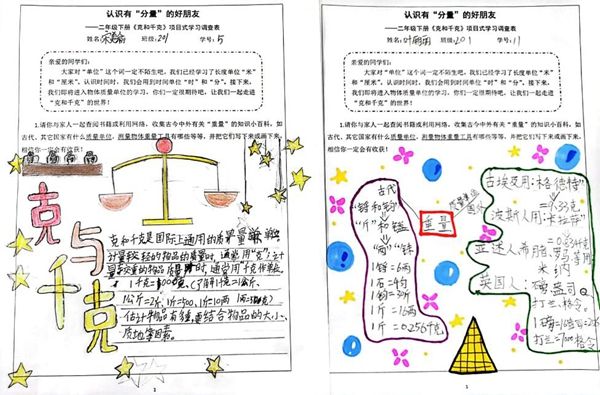 认识有“分量”的好朋友
——二年级下册《克和千克》项目式学习调查表
姓名: 班级:201 学号:5
亲爱的同学们:
大家对“单位”这个词一定不陌生吧,我们已经学习了长度单位“米”
和“厘米”,认识时间时,我们会用到时间单位“时”和“分”,接下来,
我们即将进入物体质量单位的学习,你们一定很期待吧,让我们一起走进
“克和千克”的世界!
1.请你与家人一起查阅书籍或利用网络,收集古今中外有关“重量”的知识小百科,如
古代、其它国家有什么质量单位,测量物体重量工具有哪些等等,并把它们写下来或画下来,
相信你一定会有收获!
克与千克
克和千克是国际上通用的质量单位
计量较轻的物品的质量时,通常用“克”
较重的物品质量时,通常用千克作单位
1千克=1000克
1公斤=2斤,1斤=500,1斤=10两
估计物品有多重,要结合物品的大小、
质地等因素。
认识有“分量”的好朋友
——二年级下册《克和千克》项目式学习调查表
姓名: 班级:201 学号:11
亲爱的同学们:
大家对“单位”这个词一定不陌生吧,我们已经学习了长度单位“米”
和“厘米”,认识时间时,我们会用到时间单位“时”和“分”,接下来,
我们即将进入物体质量单位的学习,你们一定很期待吧,让我们一起走进
“克和千克”的世界!
1.请你与家人一起查阅书籍或利用网络,收集古今中外有关“重量”的知识小百科,如
古代、其它国家有什么质量单位,测量物体重量工具有哪些等等,并把它们写下来或画下来,
相信你一定会有收获!
古代
“斤”和
“两”“铢”
1石=4钧
1钧=30斤
1斤=16两
1斤=0.256千克
重量
质量单位
国外
古埃及用:“格德特”
=9.33克
波斯人用:“卡拉萨”
=0.834千克
英国人:
打兰、格令。
1磅=16盎司=
打兰=7000格令